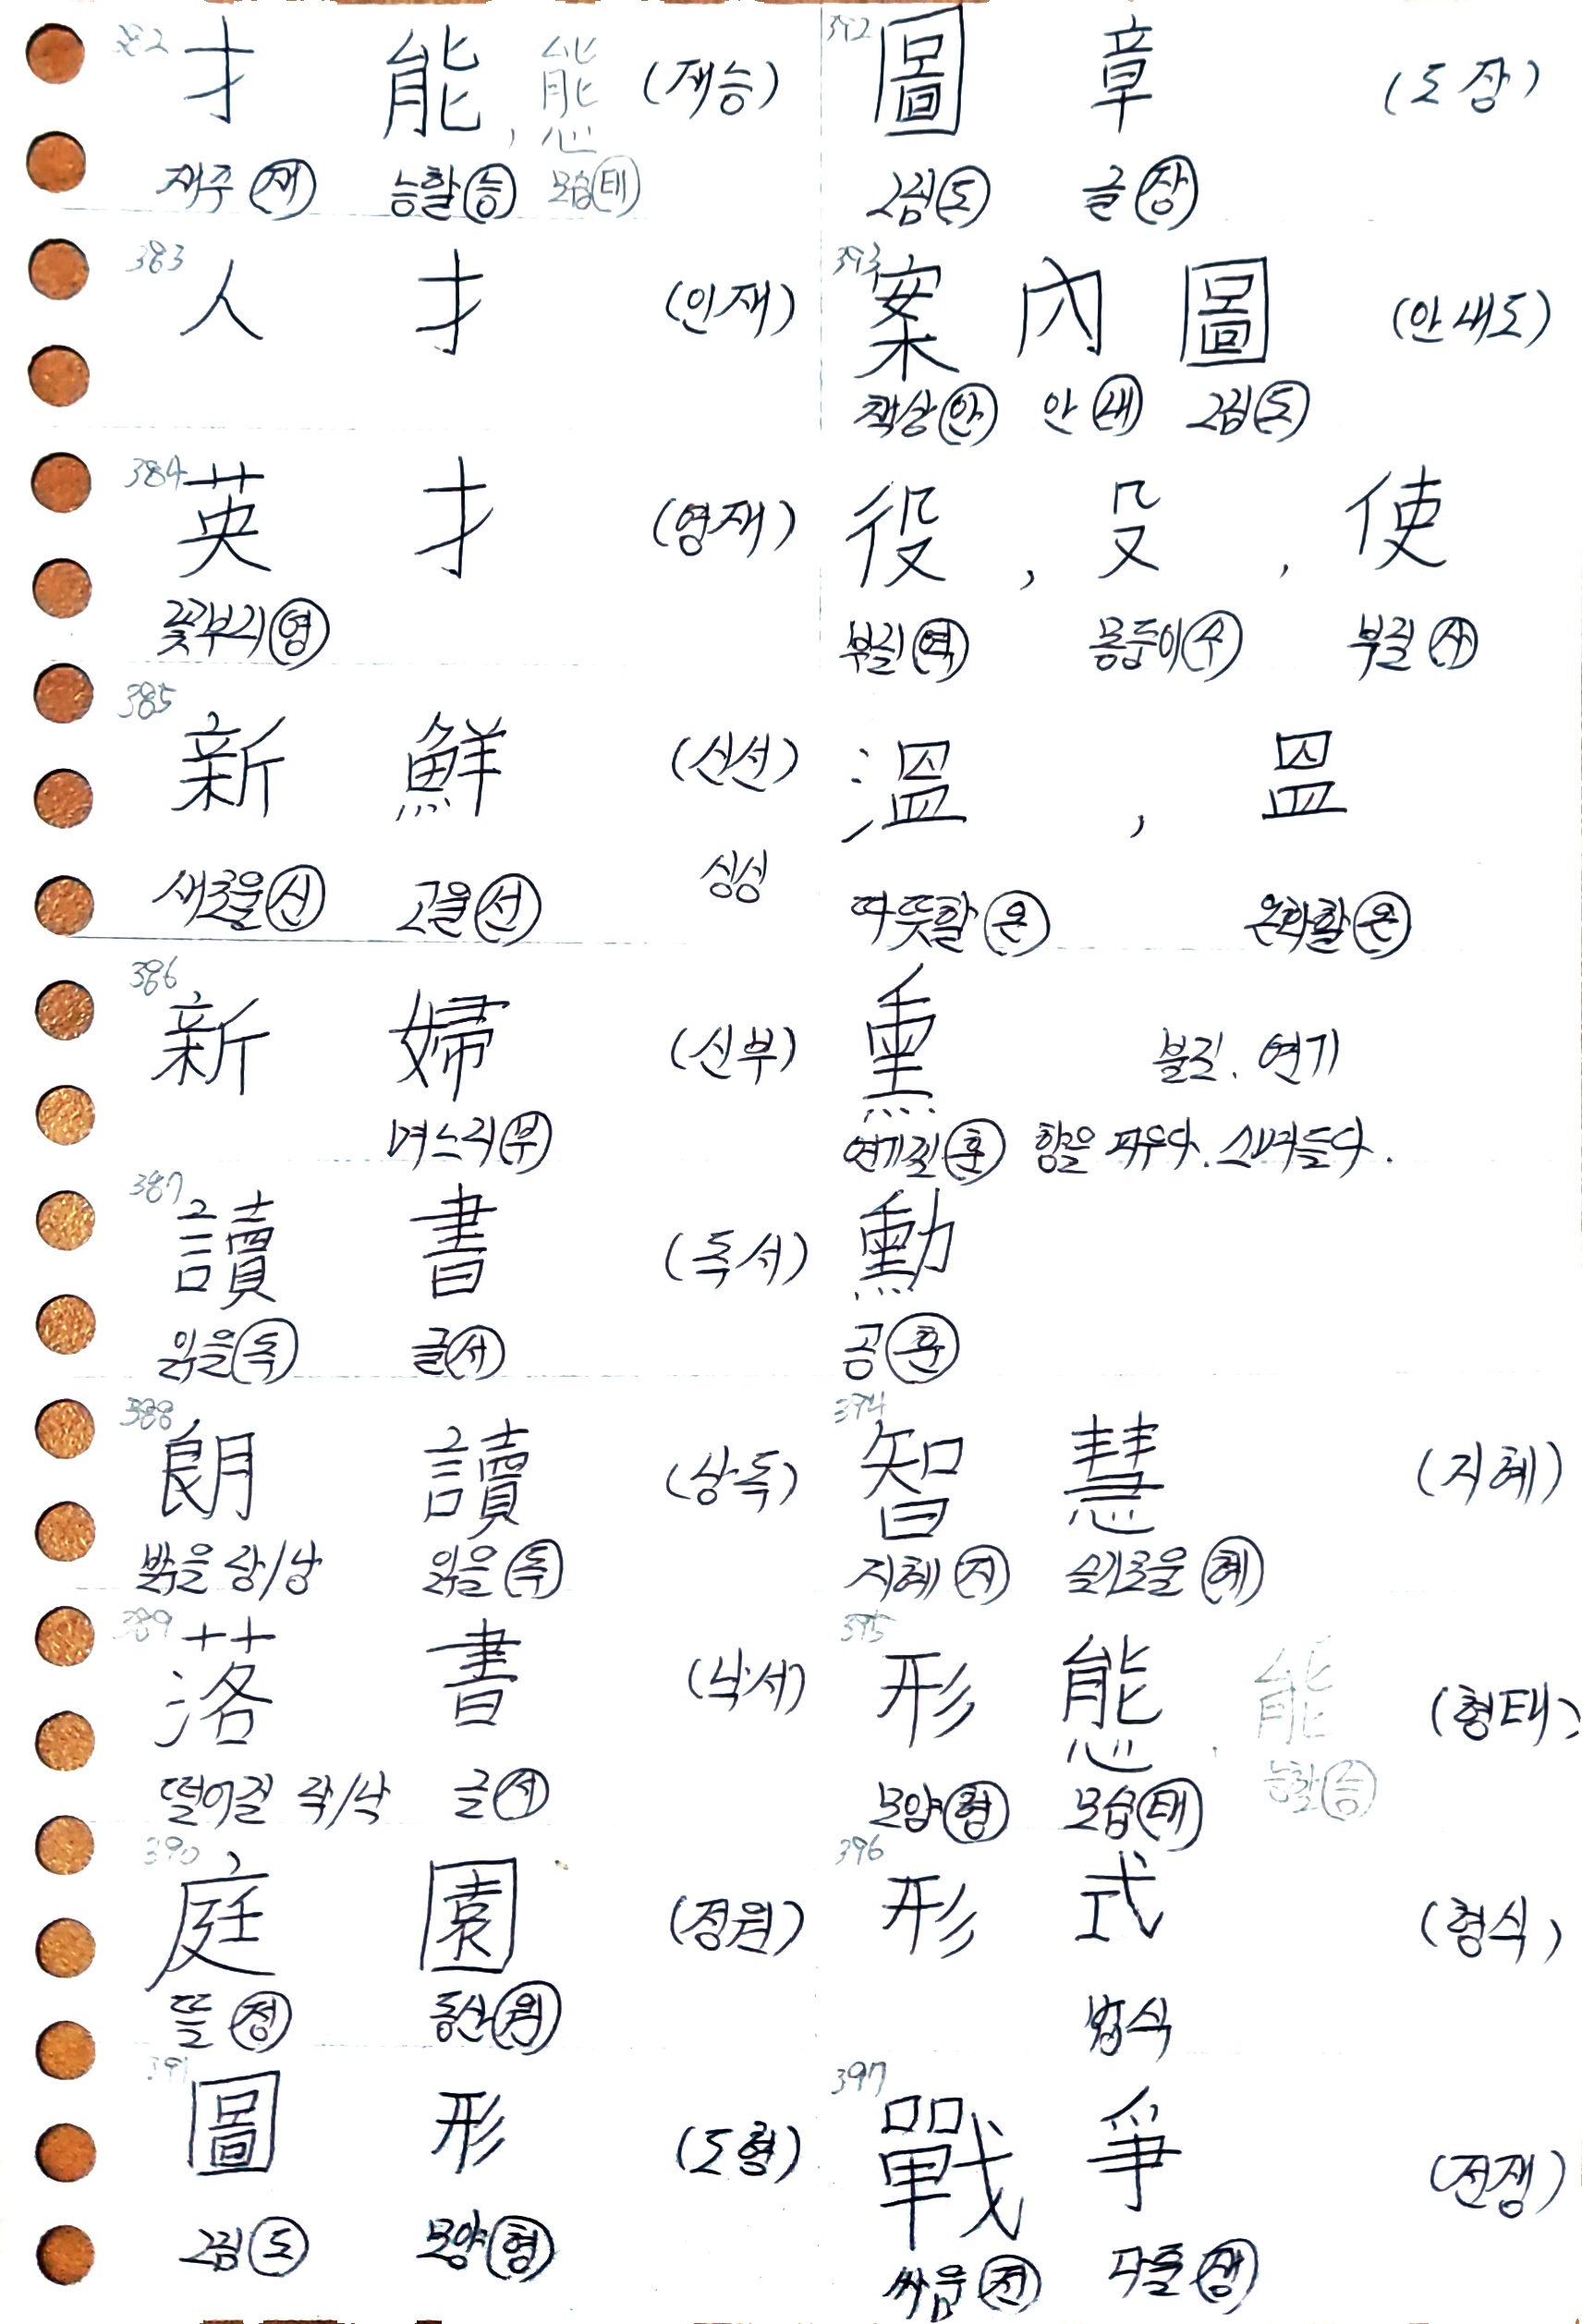 382 才 能, 態 (재능)
재주(재) 능할(능) 모습(태)
383 人 才 (인재)
384 英 才 (영재)
꽃부리(영)
385 新 鮮 (신선)
싱싱
새로울(신) 고울(선)
386 新 婦 (신부)
며느리(부)
387 讀 書 (독서)
읽을(독) 글(서)
388 朗 讀 (랑독)
밝을 랑/낭 읽을(독)
389 落 書 (낙서)
떨어질 락/낙 글(서)
390 庭 園 (정원)
뜰(정) 동산(원)
391 圖 形 (도형)
그림(도) 모양(형)
392 圖 章 (도장)
그림(도) 글(장)
393 案 內 圖 (안내도)
책상(안) 안(내) 그림(도)
役, 殳, 使
부릴(역) 몽둥이(수) 부릴(사)
溫, 昷
따뜻할(온) 온화할(온)
熏 불길. 연기
연기낄(훈) 향을 피우다. 스며들다.
勳
공(훈)
394 智 慧 (지혜)
지혜(지) 슬기로울(혜)
395 形 態, 能 (형태)
모양(형) 모습(태) 능할(능)
396 形 式 (형식)
법식
397 戰 爭 (전쟁)
싸움(전) 다툴(쟁)